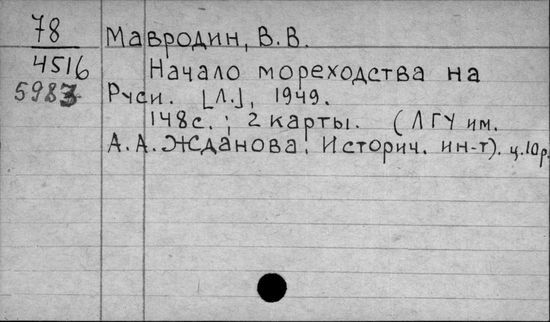 78
Мавродин, В.В.
4516
Начало мореходства на
5983
Руси. [Л.], 1949.
148с.; 2 карты. (ЛГУ им.
А.А.Жданова. Историч. ин-т). ц.10р.